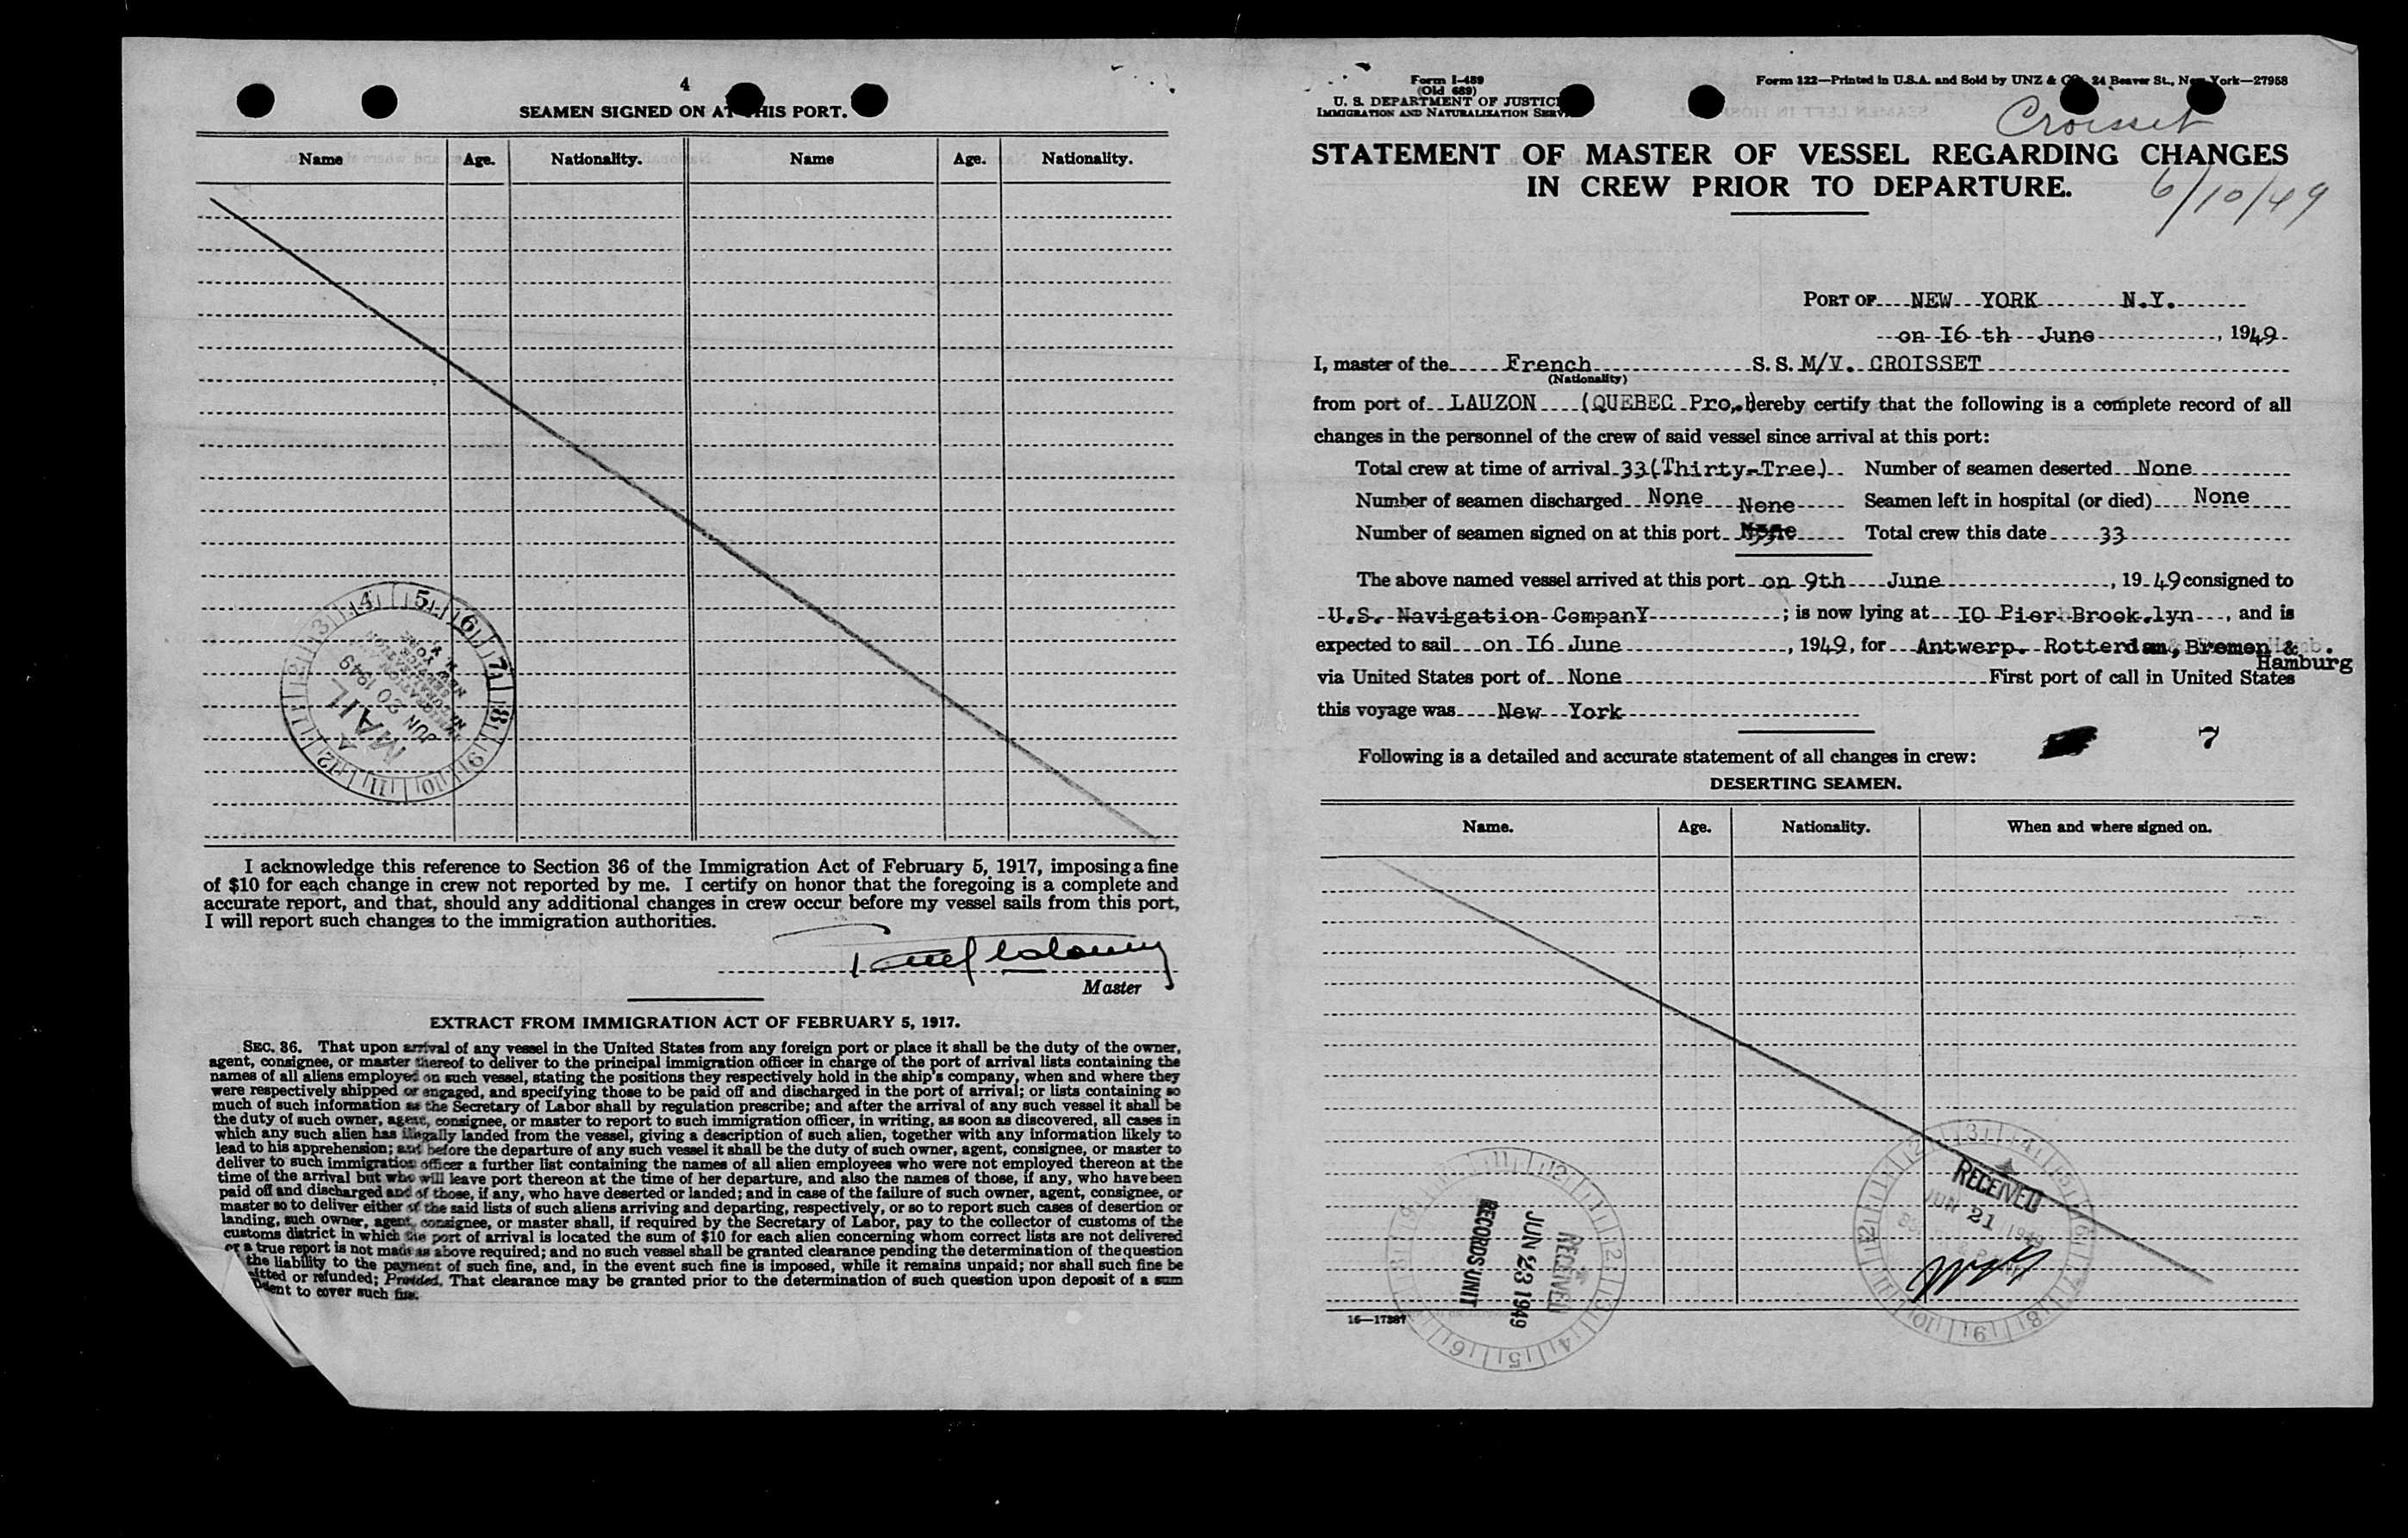 4
SEAMEN SIGNED ON AT THIS PORT.
Name Age. Nationality. Name Age. Nationality.
MAIL
JUN 20 1949
I acknowledge this reference to Section 36 of the Immigration Act of February 5, 1917, imposing a fine
of $10 for each change in crew not reported by me. I certify on honor that the foregoing is a complete and
accurate report, and that, should any additional changes in crew occur before my vessel sails from this port,
I will report such changes to the immigration authorities.
Master
EXTRACT FROM IMMIGRATION ACT OF FEBRUARY 5, 1917.
SEC. 36. That upon arrival of any vessel in the United States from any foreign port or place it shall be the duty of the owner,
agent, consignee, or master thereof to deliver to the principal immigration officer in charge of the port of arrival lists containing the
names of all aliens employed on such vessel, stating the positions they respectively hold in the ship's company, when and where they
were respectively shipped or engaged, and specifying those to be paid off and discharged in the port of arrival; or lists containing so
much of such information as the Secretary of Labor shall by regulation prescribe; and after the arrival of any such vessel it shall be
the duty of such owner, agent, consignee, or master to report to such immigration officer, in writing, as soon as discovered, all cases in
which any such alien has illegally landed from the vessel, giving a description of such alien, together with any information likely to
lead to his apprehension; and before the departure of any such vessel it shall be the duty of such owner, agent, consignee, or master to
deliver to such immigration officer a further list containing the names of all alien employees who were not employed thereon at the
time of the arrival but who will leave port thereon at the time of her departure, and also the names of those, if any, who have been
paid off and discharged and of those, if any, who have deserted or landed; and in case of the failure of such owner, agent, consignee, or
master so to deliver either of the said lists of such aliens arriving and departing, respectively, or so to report such cases of desertion or
landing, such owner, agent, consignee, or master shall, if required by the Secretary of Labor, pay to the collector of customs of the
customs district in which the port of arrival is located the sum of $10 for each alien concerning whom correct lists are not delivered
or a true report is not made as above required; and no such vessel shall be granted clearance pending the determination of the question
the liability to the payment of such fine, and, in the event such fine is imposed, while it remains unpaid; nor shall such fine be
or refunded; Provided, That clearance may be granted prior to the determination of such question upon deposit of a sum
to cover such fine.
Form I-489
(Old 689)
U. S. DEPARTMENT OF JUSTICE
IMMIGRATION AND NATURALIZATION SERVICE
Form 122—Printed in U.S.A. and Sold by UNZ & CO., 24 Beaver St., New York—27958
Croisset
STATEMENT OF MASTER OF VESSEL REGARDING CHANGES
IN CREW PRIOR TO DEPARTURE.
6/10/49
PORT OF NEW YORK N.Y.
on I6 th June, 1949
I, master of the French S. S. M/V. CROISSET
(Nationality)
from port of LAUZON (QUEBEC Pro.) hereby certify that the following is a complete record of all
changes in the personnel of the crew of said vessel since arrival at this port:
Total crew at time of arrival 33(Thirty-Tree) Number of seamen deserted None
Number of seamen discharged None Seamen left in hospital (or died) None
None
Number of seamen signed on at this port Total crew this date 33
The above named vessel arrived at this port on 9th June, 1949 consigned to
U.S. Navigation CompanY; is now lying at IO Pier Brook.lyn, and is
expected to sail on I6 June, 1949, for Antwerp. Rotterdam, Bremen &
Hamburg
via United States port of None First port of call in United States
this voyage was New York
7
Following is a detailed and accurate statement of all changes in crew:
DESERTING SEAMEN.
Name. Age. Nationality. When and where signed on.
RECEIVED
JUN 23 1949
RECORDS UNIT
RECEIVED
JUN 21 1949
16—17387